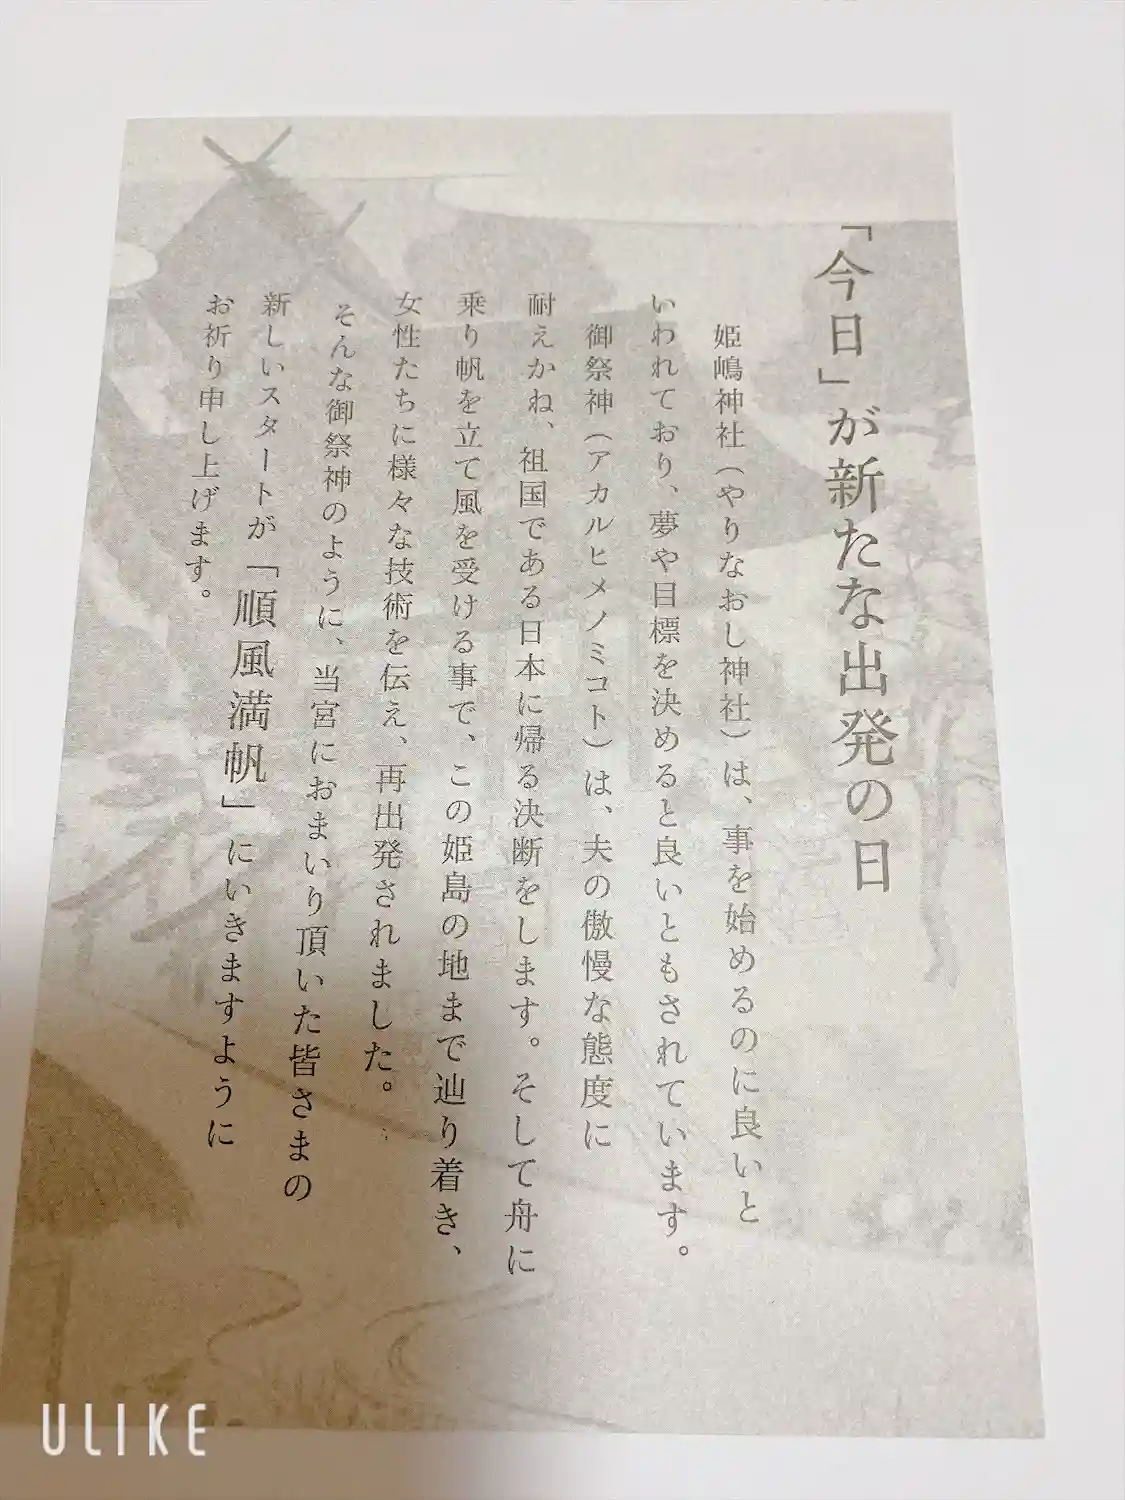 「今日」が新たな出発の日
姫嶋神社（やりなおし神社）は、事を始めるのに良いと
いわれており、夢や目標を決めると良いともされています。
御祭神（アカルヒメノミコト）は、夫の傲慢な態度に
耐えかね、祖国である日本に帰る決断をします。そして舟に
乗り帆を立て風を受ける事で、この姫島の地まで辿り着き、
女性たちに様々な技術を伝え、再出発されました。
そんな御祭神のように、当宮におまいり頂いた皆さまの
新しいスタートが「順風満帆」にいきますように
お祈り申し上げます。
ULIKE